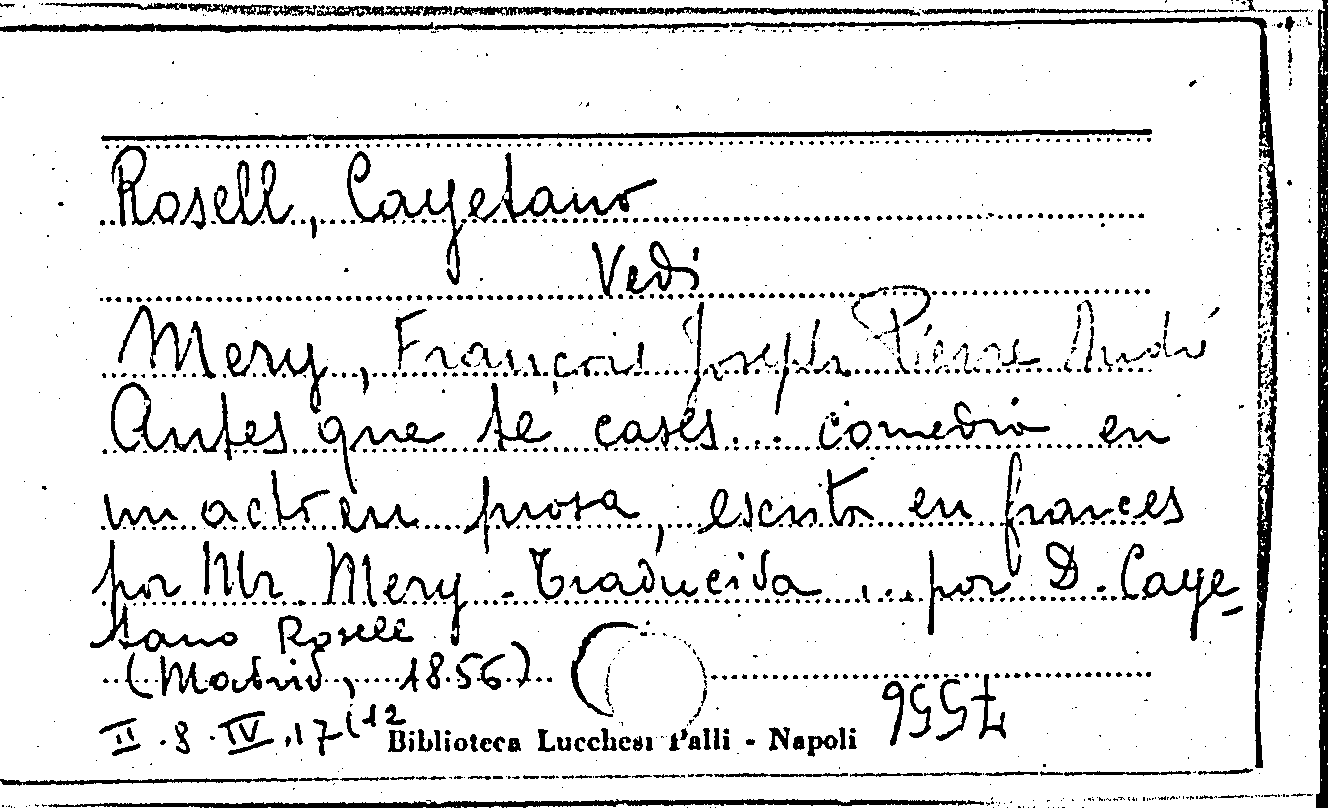 Rosell, Cayetano
Vedi
Mery, François Joseph Pierre André
Antes que te cases... comedia en
un acto en prosa, escrita en frances
por Mr. Mery - Traducida ... por D. Caye-
tano Rosell
(Madrid, 1856)
II.8.IV.17(12
Biblioteca Lucchesi Palli - Napoli
7556